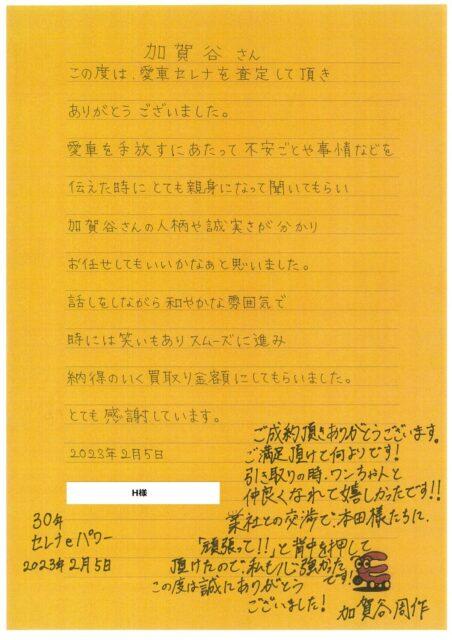 加賀谷さん
この度は、愛車セレナを査定して頂き
ありがとうございました。
愛車を手放すにあたって不安ごとや事情などを
伝えた時にとても親身になって聞いてもらい
加賀谷さんの人柄や誠実さが分かり
お任せしてもいいかなぁと思いました。
話しをしながら和やかな雰囲気で
時には笑いもありスムーズに進み
納得のいく買取り金額にしてもらいました。
とても感謝しています。
2023年2月5日
H様
30年
セレナeパワー
2023年2月5日
ご成約頂きありがとうございます。
ご満足頂けて何よりです!
引き取りの時、ワンちゃんと
仲良くなれて嬉しかったです!!
業社との交渉で、本田様たちに、
「頑張って!!」と背中を押して
頂けたので、私も心強かった
です!
この度は誠にありがとう
ございました!
加賀谷周作